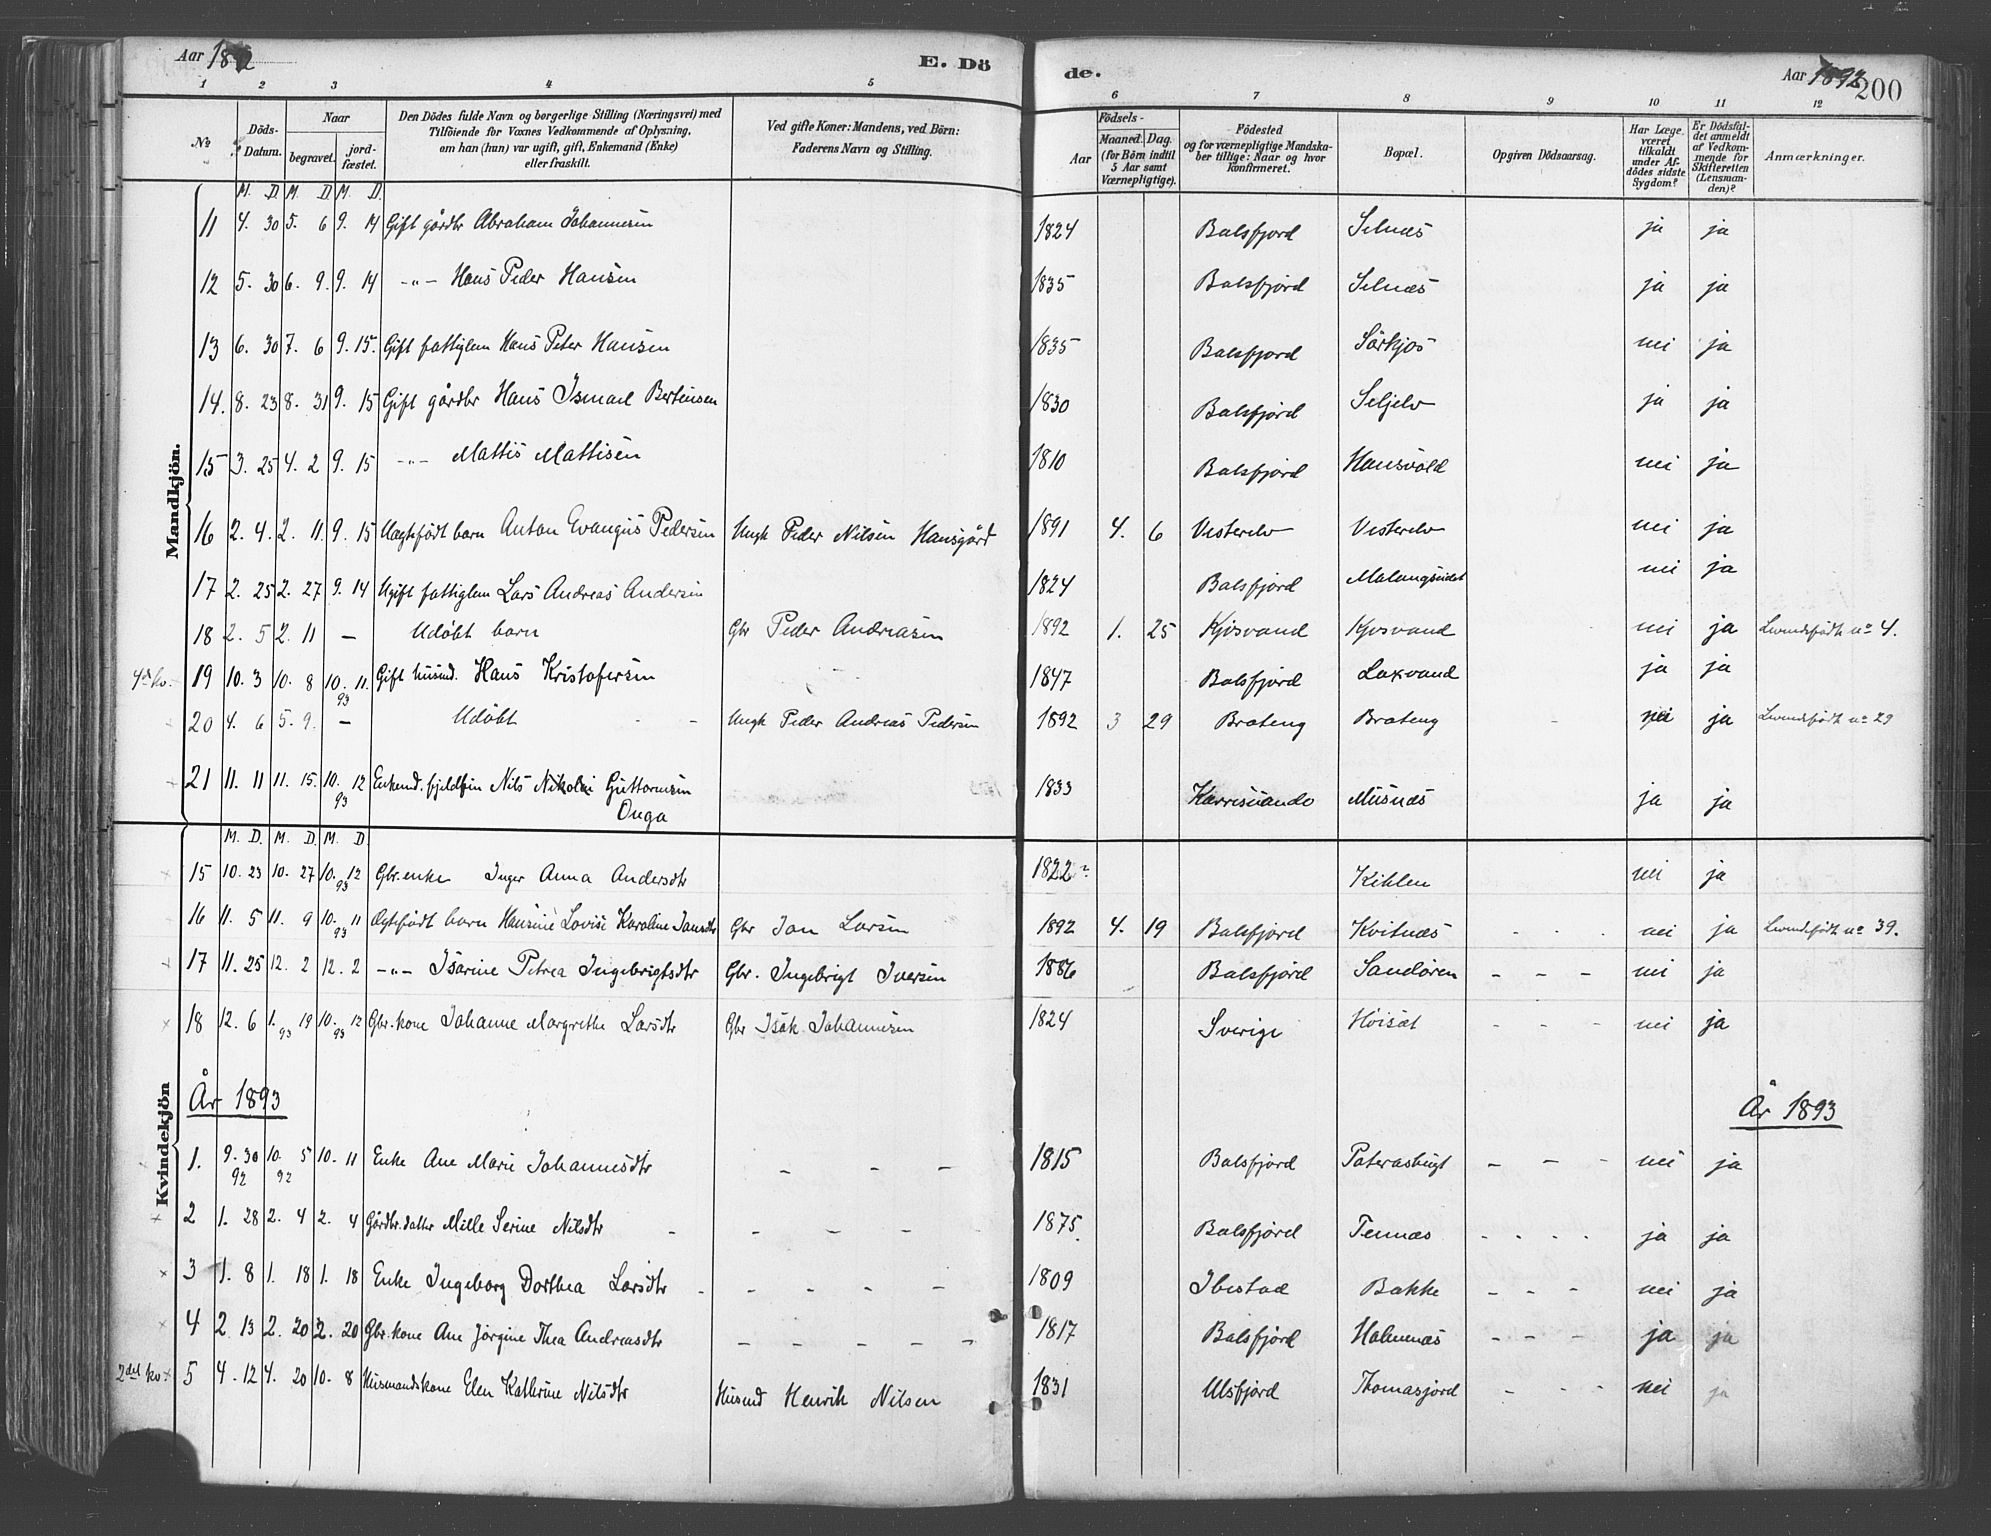 Aar 1892 E. Dö de. Aar 1892 200
1 2 3 4 5 6 7 8 9 10 11 12
No Döds-Datum. Naar begravet. jord-fæstet. Den Dödes fulde Navn og borgerlige Stilling (Næringsvei) med Tilföiende for Voxnes Vedkommende af Oplysning, om han (hun) var ugift, gift, Enkemand (Enke) eller fraskilt. Ved gifte Koner: Mandens, ved Börn: Faderens Navn og Stilling. Födsels- Aar Maaned. Dag. (for Börn indtil 5 Aar samt Værnepligtige). Födested og for værnepligtige Mandskaber tillige: Naar og hvor Konfirmeret. Bopæl. Opgiven Dödsaarsag. Har Læge været tilkaldt under Afdödes sidste Sygdom? Er Dödsfaldet anmeldt af Vedkommende for Skifteretten (Lensmanden)? Anmærkninger.
Mandkjön.
M. D. M. D. M. D.
11 4. 30 5. 6 9. 14 Gift gårdbr Abraham Johannesen 1824 Balsfjord Selnæs ja ja
12 5. 30 6. 9. 9. 14 -"- Hans Peder Hansen 1835 Balsfjord Selnæs ja ja
13 6. 30 7. 6 9. 15. Gift fattiglem Hans Peter Hansen 1835 Balsfjord Sörkjos nei ja
14. 8. 23 8. 31 9. 15 Gift gårdbr Hans Ismael Bertensen 1830 Balsfjord Seljelv ja ja
15 3. 25 4. 2 9. 15 -"- Mattis Mattisen 1810 Balsfjord Hansvold nei ja
16 2. 4. 2. 11 9. 15 Uægtefödt barn Anton Evangius Pedersen Ungk Peder Nilsen Hansgård 1891 4. 6 Vesterelv Vesterelv nei ja
17 2. 25 2. 27 9. 14 Ugift fattiglem Lars Andreas Andersen 1824 Balsfjord Malangseidet nei ja
18 2. 5 2. 11 — Udöbt barn Gbr Peder Andreasen 1892 1. 25 Kjosvand Kjosvand nei ja Levendefödt no 4.
4de kv. 19 10. 3 10. 8 10. 11. 93 Gift husmd. Hans Kristofersen 1847 Balsfjord Laxvand ja ja
20 4. 6 5. 9. — Udöbt - - Ungk Peder Andreas Pedersen 1892 3 29 Brateng Brateng - nei ja Levendefödt no 29
21 11. 11 11. 15. 10. 12 93 Enkemd. fjeldfin Nils Nikolai Guttormsen Onga 1833 Karresuando Misnæs ja ja
Kvindekjön
M. D. M. D. M. D.
15 10. 23 10. 27 10. 12 93 Gbr. enke Inger Anna Andersdtr 1822 Kiklen nei ja
16 11. 5 11. 9 10. 11 93 Ægtefödt barn Hansine Lovise Karoline Jansdtr Gbr Jan Larsen 1892 4. 19 Balsfjord Kvitnæs - - - nei ja Levendefödt no 39.
17 11. 25 12. 2 12. 2 -"- Isarine Petrea Ingebrigtsdtr Gbr. Ingebrigt Iversen 1886 Balsfjord Sandören - - - nei ja
18 12. 6 1. 19 93 10. 12 93 Gbr. kone Johanne Margrethe Larsdtr Gbr Isak Johannesen 1824 Sverige Höisæt - - - nei ja
År 1893 År 1893
1. 9. 30 92 10. 5 92 10. 11 Enke Ane Marie Johannesdtr - - - 1815 Balsfjord Paterasbugt - - - nei ja
2 1. 28 2. 4 2. 4 Gårdbr. datter Mille Serine Nilsdtr - - - - - 1875. Balsfjord Tennæs - - - - ja ja
3 1. 8 1. 18 1. 18 Enke Ingeborg Dorthea Larsdtr - - - - - 1809 Ibestad Bakke - - - nei ja
4 2 13 2. 20 2. 20 Gbr. kone Ane Jørgine Thea Andreasdtr - - - - - 1817 Balsfjord Holmenæs - - - ja ja
2det kv. 5 4. 12 4. 20 10. 8 Husmandskone Elen Kathrine Nilsdtr Husmd Henrik Nilsen 1831 Ulsfjord Thomasjord - - - nei ja